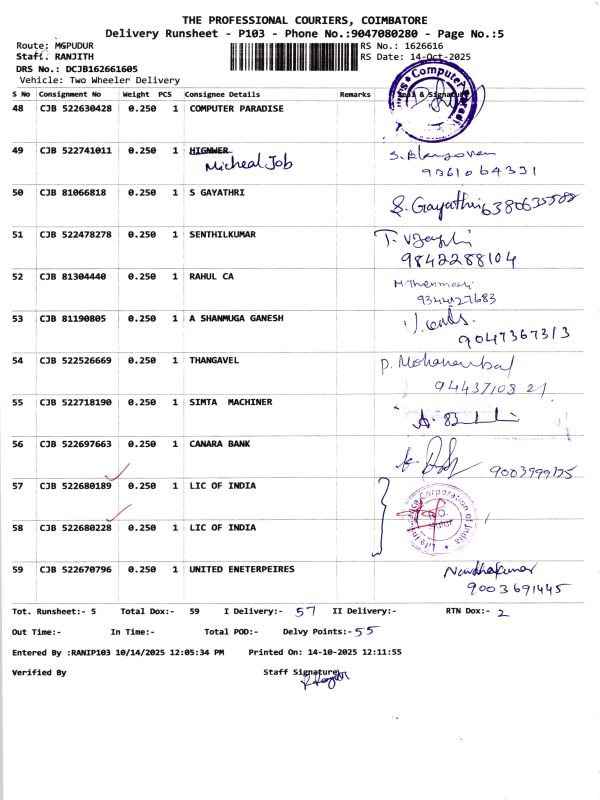 THE PROFESSIONAL COURIERS, COIMBATORE
Delivery Runsheet - P103 - Phone No.:9047080280 - Page No.:5
Route: MGPUDUR RS No.: 1626616
Staff: RANJITH RS Date: 14-Oct-2025
DRS No.: DCJB162661605
Vehicle: Two Wheeler Delivery
S No Consignment No Weight PCS Consignee Details Remarks Seal & Signature
48 CJB 522630428 0.250 1 COMPUTER PARADISE
49 CJB 522741011 0.250 1 HIGNWER
Micheal Job
50 CJB 81066818 0.250 1 S GAYATHRI S. Gayathri
51 CJB 522478278 0.250 1 SENTHILKUMAR
9842288104
52 CJB 81304440 0.250 1 RAHUL CA
53 CJB 81190805 0.250 1 A SHANMUGA GANESH
9047367313
54 CJB 522526669 0.250 1 THANGAVEL
9443710821
55 CJB 522718190 0.250 1 SIMTA MACHINER
56 CJB 522697663 0.250 1 CANARA BANK
57 CJB 522680189 0.250 1 LIC OF INDIA
Life Insurance Corporation of India
58 CJB 522680228 0.250 1 LIC OF INDIA
59 CJB 522670796 0.250 1 UNITED ENETERPEIRES Nandhakumar
9003691445
Tot. Runsheet:- 5 Total Dox:- 59 I Delivery:- 57 II Delivery:- RTN Dox:- 2
Out Time:- In Time:- Total POD:- Delvy Points:- 55
Entered By :RANIP103 10/14/2025 12:05:34 PM Printed On: 14-10-2025 12:11:55
Verified By Staff Signature